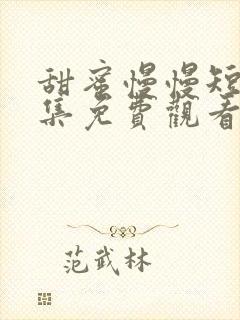 甜蜜慢慢短
集免費觀看
范武林